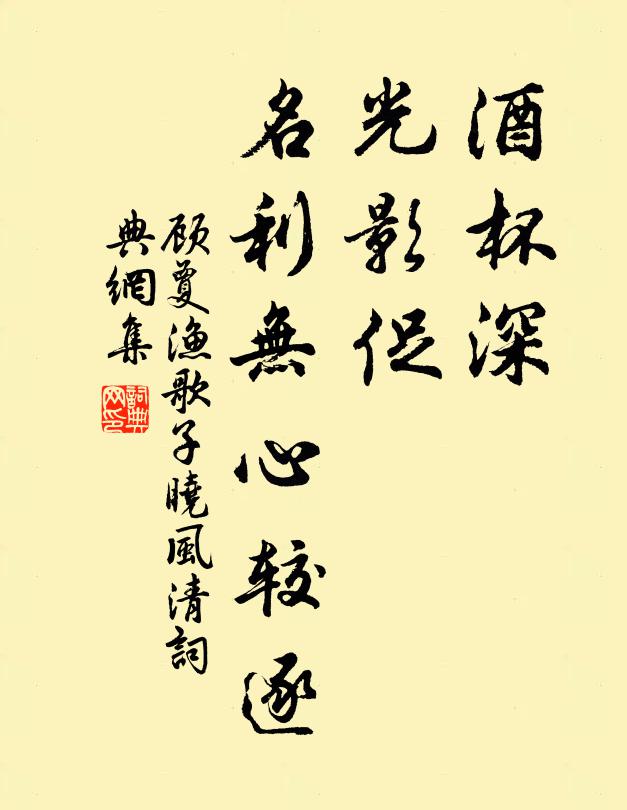 酒杯深
光影促
名利無心较逐
顾敻渔歌子曉風清詞
典網集
詞典
网印